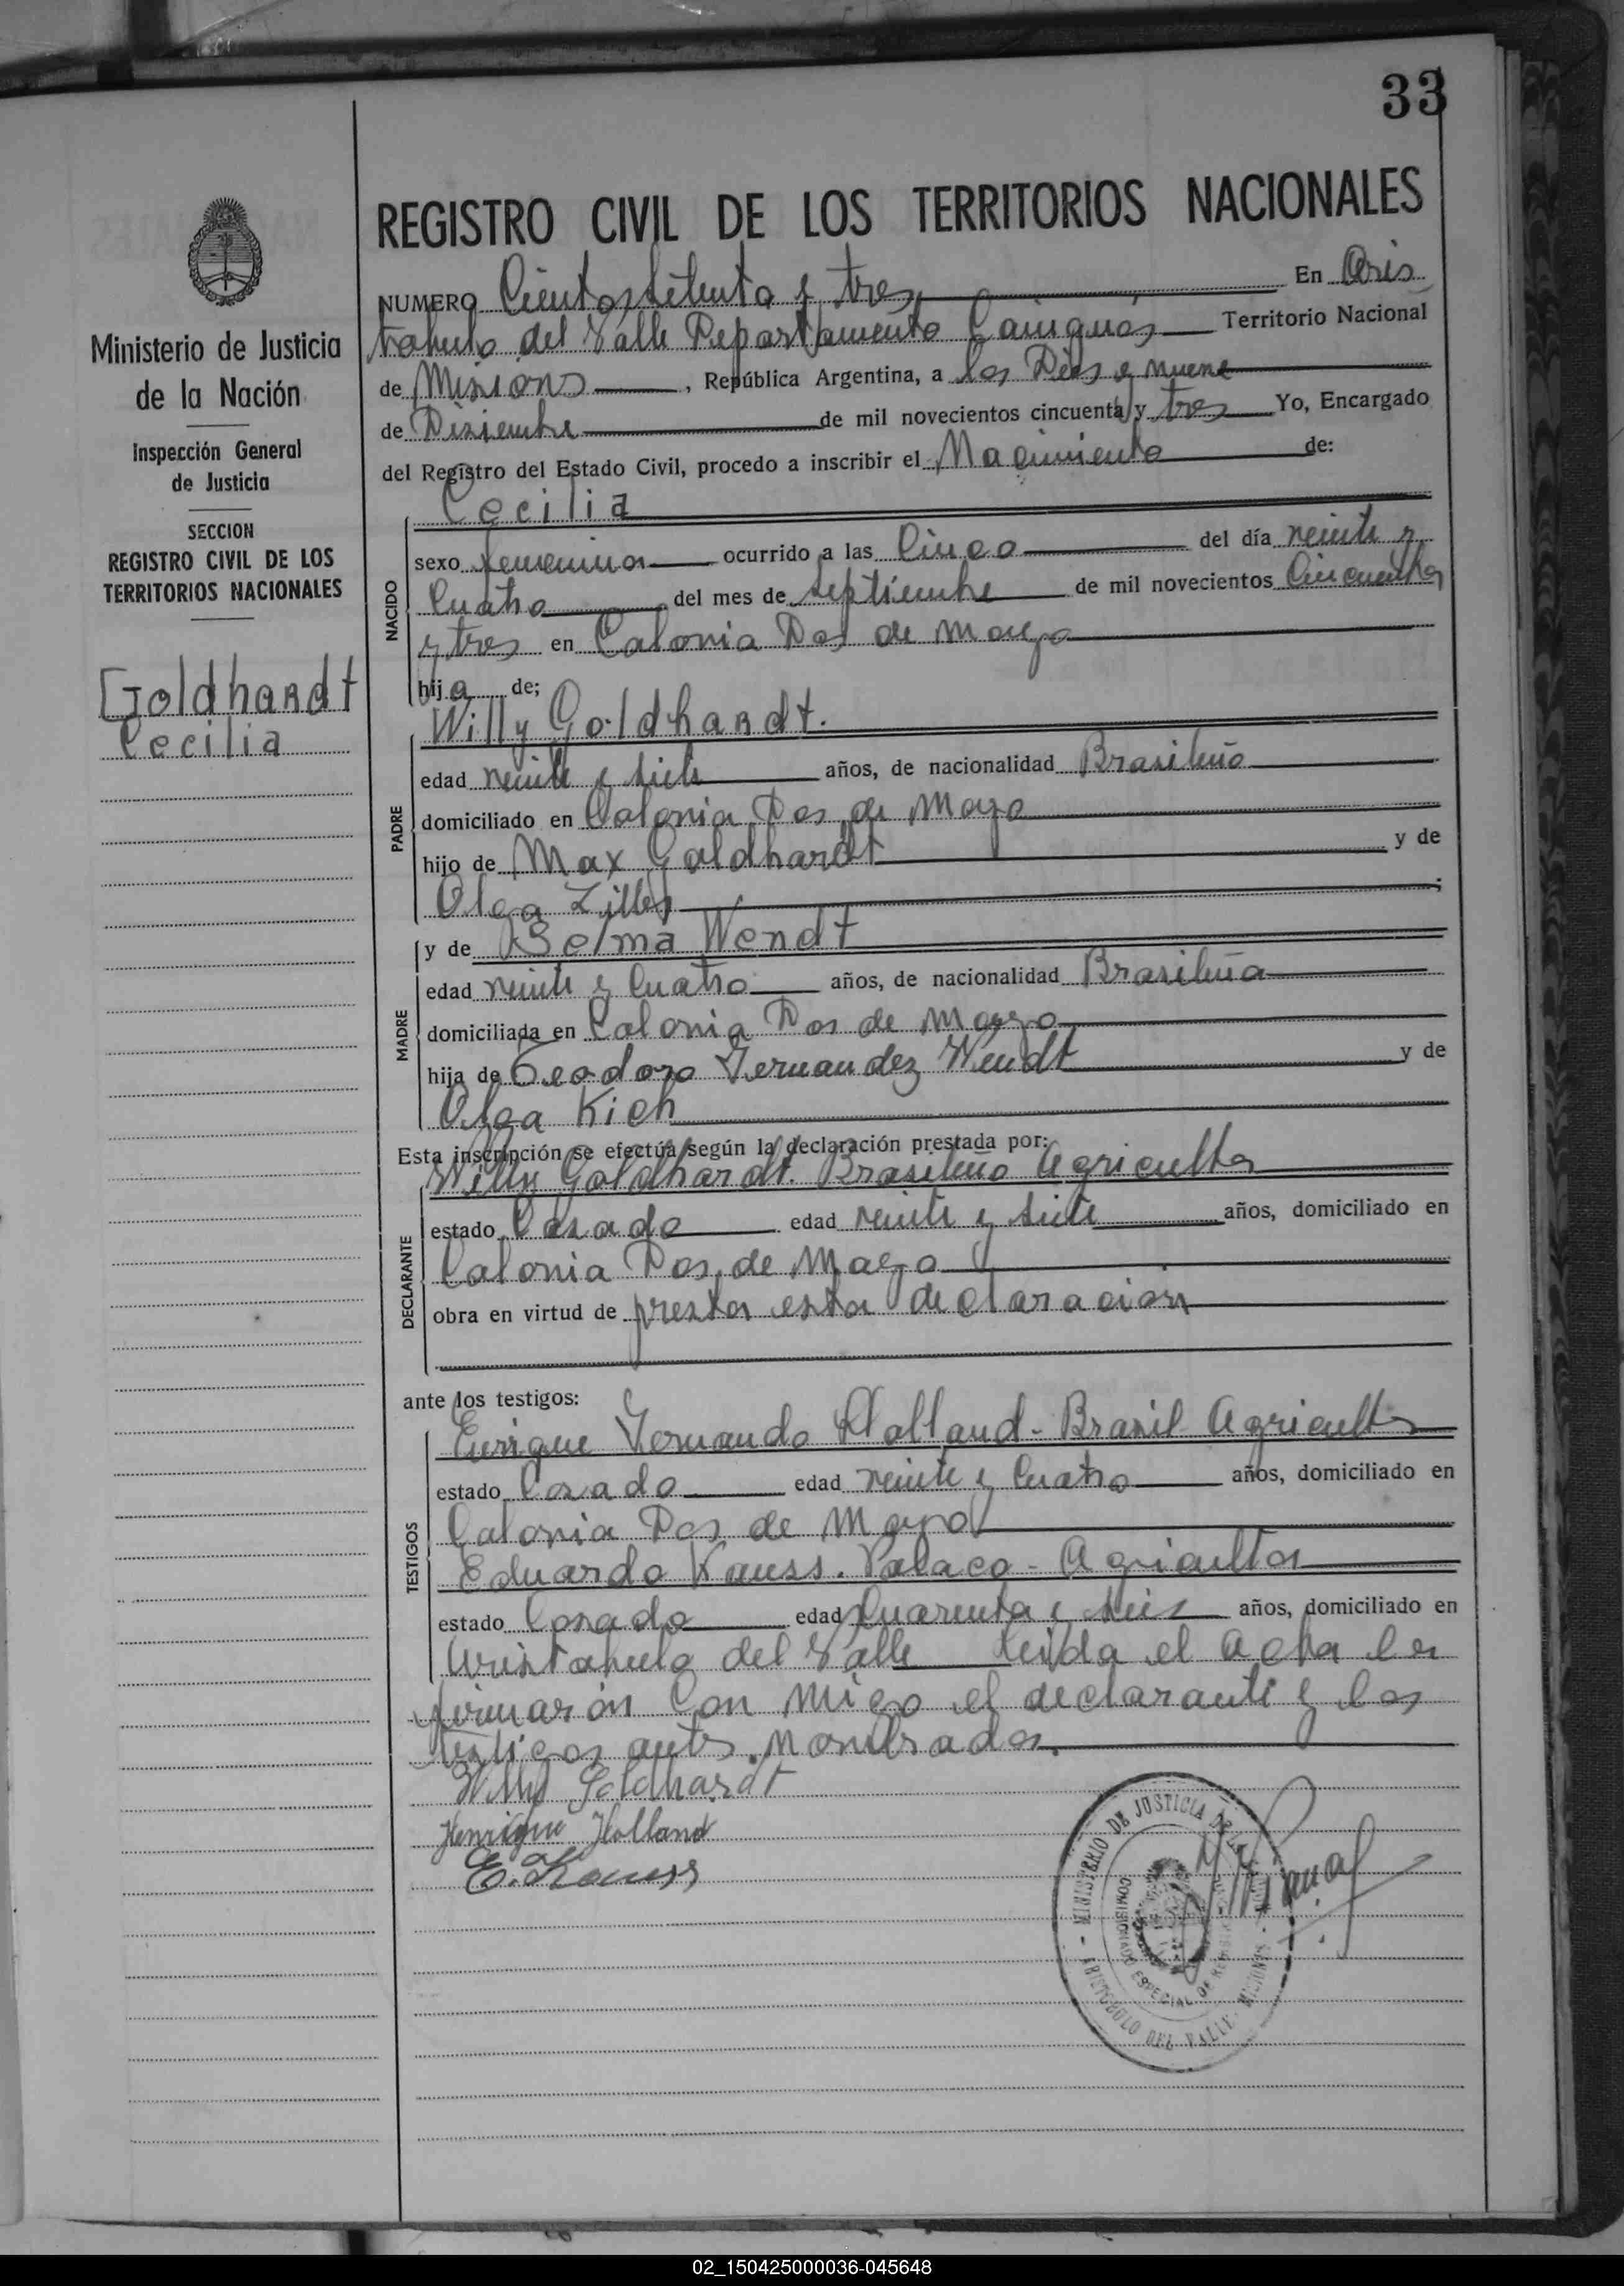 33
REGISTRO CIVIL DE LOS TERRITORIOS NACIONALES
Ministerio de Justicia
de la Nación
Inspección General
de Justicia
SECCION
REGISTRO CIVIL DE LOS
TERRITORIOS NACIONALES
Goldhardt
Cecilia
NUMERO Ciento setenta y tres En Aris
tobulo del Valle Departamento Cainguás Territorio Nacional
de Misiones, República Argentina, a los Diez y nueve
de Diziembre de mil novecientos cincuenta y tres Yo, Encargado
del Registro del Estado Civil, procedo a inscribir el Nacimiento de:
Cecilia
NACIDO
sexo femenina ocurrido a las Cinco del día veinte y
Cuatro del mes de septiembre de mil novecientos Cincuenta
y tres en Colonia Dos de Mayo
hija de;
PADRE
Willy Goldhardt.
edad veinte y siete años, de nacionalidad Brasileño
domiciliado en Colonia Dos de Mayo
hijo de Max Goldhardt y de
Olga Ziller;
MADRE
y de Selma Wendt
edad veinte y Cuatro años, de nacionalidad Brasileña
domiciliada en Colonia Dos de Mayo
hija de Teodoro Fernandez Wendt y de
Olga Kich
Esta inscripción se efectúa según la declaración prestada por:
DECLARANTE
Willy Goldhardt. Brasileño Agricultor
estado Casado edad veinte y siete años, domiciliado en
Colonia Dos de Mayo
obra en virtud de prestar esta declaración
ante los testigos:
TESTIGOS
Enrique Fernando Holland - Brasil Agricultor
estado Casado edad veinte y Cuatro años, domiciliado en
Colonia Dos de Mayo
Eduardo Kauss. Polaco - Agricultor
estado Casado edad Cuarenta y seis años, domiciliado en
Aristobulo del Valle Leida el Acta la
firmarón Con migo el declarante y los
testigos antes nombrados.
Willy Goldhardt
Henrique Holland
E. Kauss
- MINISTERIO DE JUSTICIA DE LA
ESPECIAL DE
ARISTOBULO DEL VALLE - MISIONES -
02_150425000036-045648